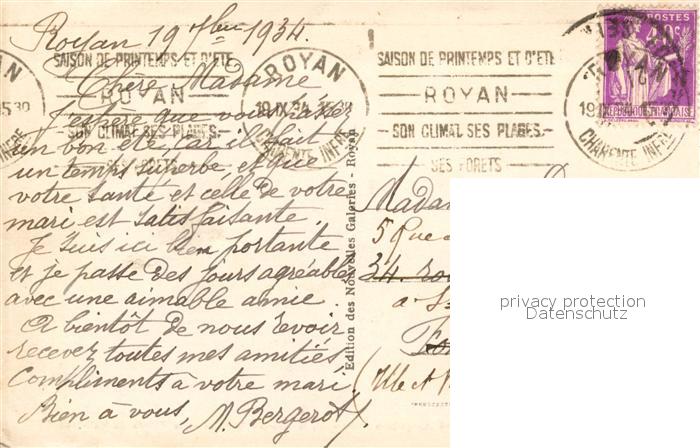 Royan 19 7bre 1934.
SAISON DE PRINTEMPS ET D'ÉTÉ
ROYAN
SON CLIMAT, SES PLAGES
SES FORETS
ROYAN
19 IX 34
CHARENTE INFRE
SAISON DE PRINTEMPS ET D'ÉTÉ
ROYAN
SON CLIMAT, SES PLAGES
SES FORETS
19 IX
CHARENTE INFRE
POSTES
40c
Chère Madame
J'espère que vous
un bon été, car il fait
un temps superbe, et que
votre santé et celle de votre
mari est satisfaisante.
Je suis ici bien portante
et je passe des jours agréables
avec une aimable amie
A bientôt de nous revoir
recevez toutes mes amitiés
Compliments à votre mari.
Bien à vous, M. Bergerot
Edition des Nouvelles Galeries - Royan
Madam
5 Rue
34
a S
(Ille et
privacy protection
Datenschutz